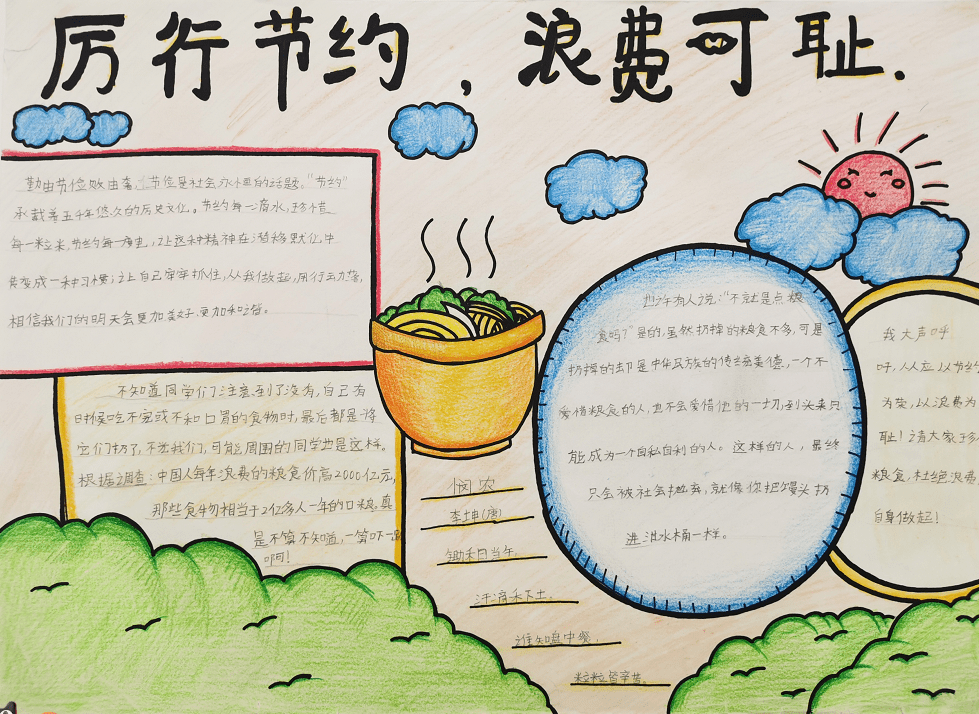 厉行节约，浪费可耻.
勤由节俭败由奢，节俭是社会永恒的话题。"节约"
承载着五千年悠久的历史文化。节约每一滴水，珍惜
每一粒米，节约每一度电，让这种精神在潜移默化中
演变成一种习惯；让自己牢牢抓住，从我做起，用行动力落，
相信我们的明天会更加美好、更加和谐。
不知道同学们注意到了没有，自己有
时候吃不完或不和口胃的食物时，最后都是将
它们扔了，不光我们，可能周围的同学也是这样。
根据调查：中国人每年浪费的粮食价高2000亿元，
那些食物相当于2亿多人一年的口粮。真
是不算不知道，一算吓一跳
啊！
悯农
李坤(唐)
锄禾日当午，
汗滴禾下土。
谁知盘中餐，
粒粒皆辛苦。
也许有人说："不就是点粮
食吗？"是的，虽然扔掉的粮食不多，可是
扔掉的却是中华民族的传统美德，一个不
爱惜粮食的人，也不会爱惜他的一切，到头来只
能成为一个自私自利的人。这样的人，最终
只会被社会抛弃，就像你把馒头扔
进泔水桶一样。
我大声呼
吁，从人应以节约
为荣，以浪费为
耻！请大家珍
粮食，杜绝浪费
自身做起！